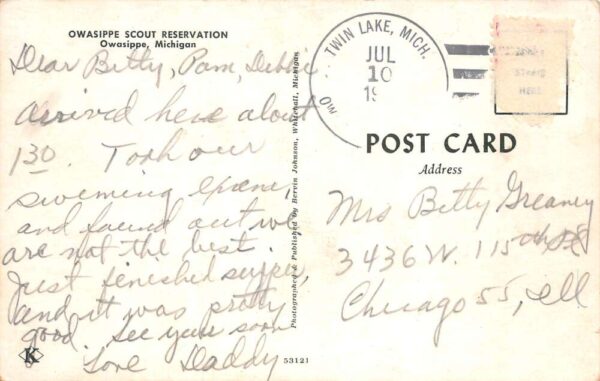 OWASIPPE SCOUT RESERVATION
Owasippe, Michigan
Dear Betty, Pam, Debbie
arrived here about
1 30. Took our
swimming
and found out we
are not the best.
Just finished supper,
and it was pretty
good. See you soon
Love Daddy
K
Photographed & Published by Bervin Johnson, Whitehall, Michigan
53121
TWIN LAKE, MICH.
JUL
10
19
POST CARD
Address
Mrs Betty Greaney
3436 W. 115th
Chicago 55, Ill